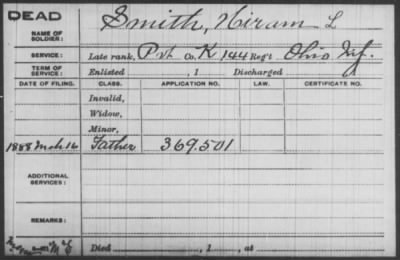 DEAD
NAME OF SOLDIER: Smith, Hiram L
SERVICE: Late rank, Pvt Co. K 144 Reg't Ohio Inf.
TERM OF SERVICE: Enlisted , 1 Discharged , 1
DATE OF FILING. CLASS. APPLICATION NO. LAW. CERTIFICATE NO.
Invalid,
Widow,
Minor,
1888 Mch 16 Father 369.501
ADDITIONAL SERVICES:
REMARKS:
Died , 1 , at